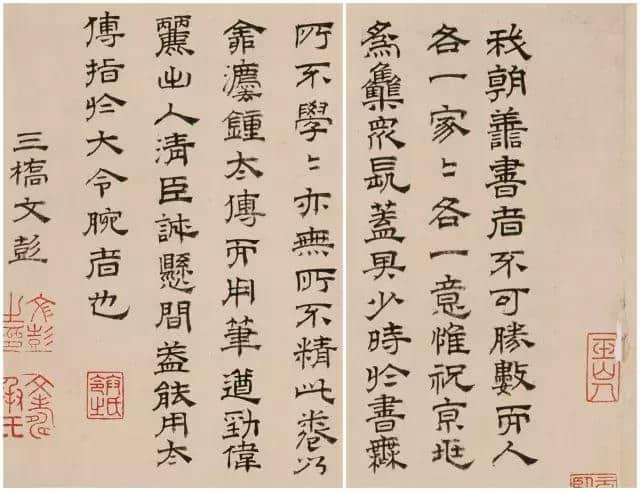 我朝善書者不可勝數而人
各一家〻各一意惟祝京兆
為集眾長蓋其少時於書無
所不學〻亦無所不精此卷以
灋鍾太傅而用筆遒勁偉
麗出入清臣誠懸間蓋能用太
傅指於大令腕者也
三橋文彭
文彭之印
文壽承氏